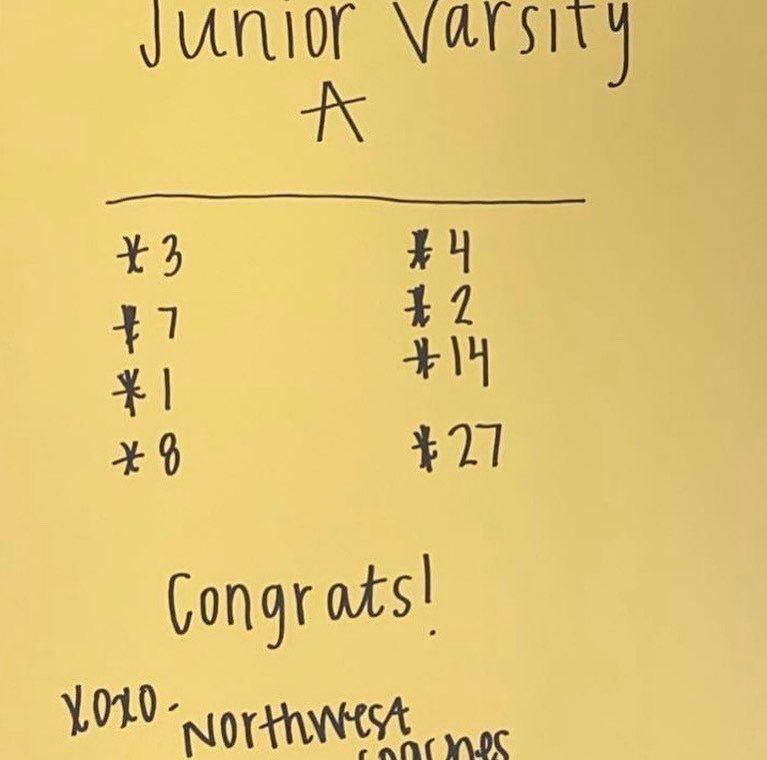 Junior Varsity
A
* 3
* 7
* 1
* 8
* 4
* 2
* 14
* 27
Congrats!
xoxo- Northwest
coaches